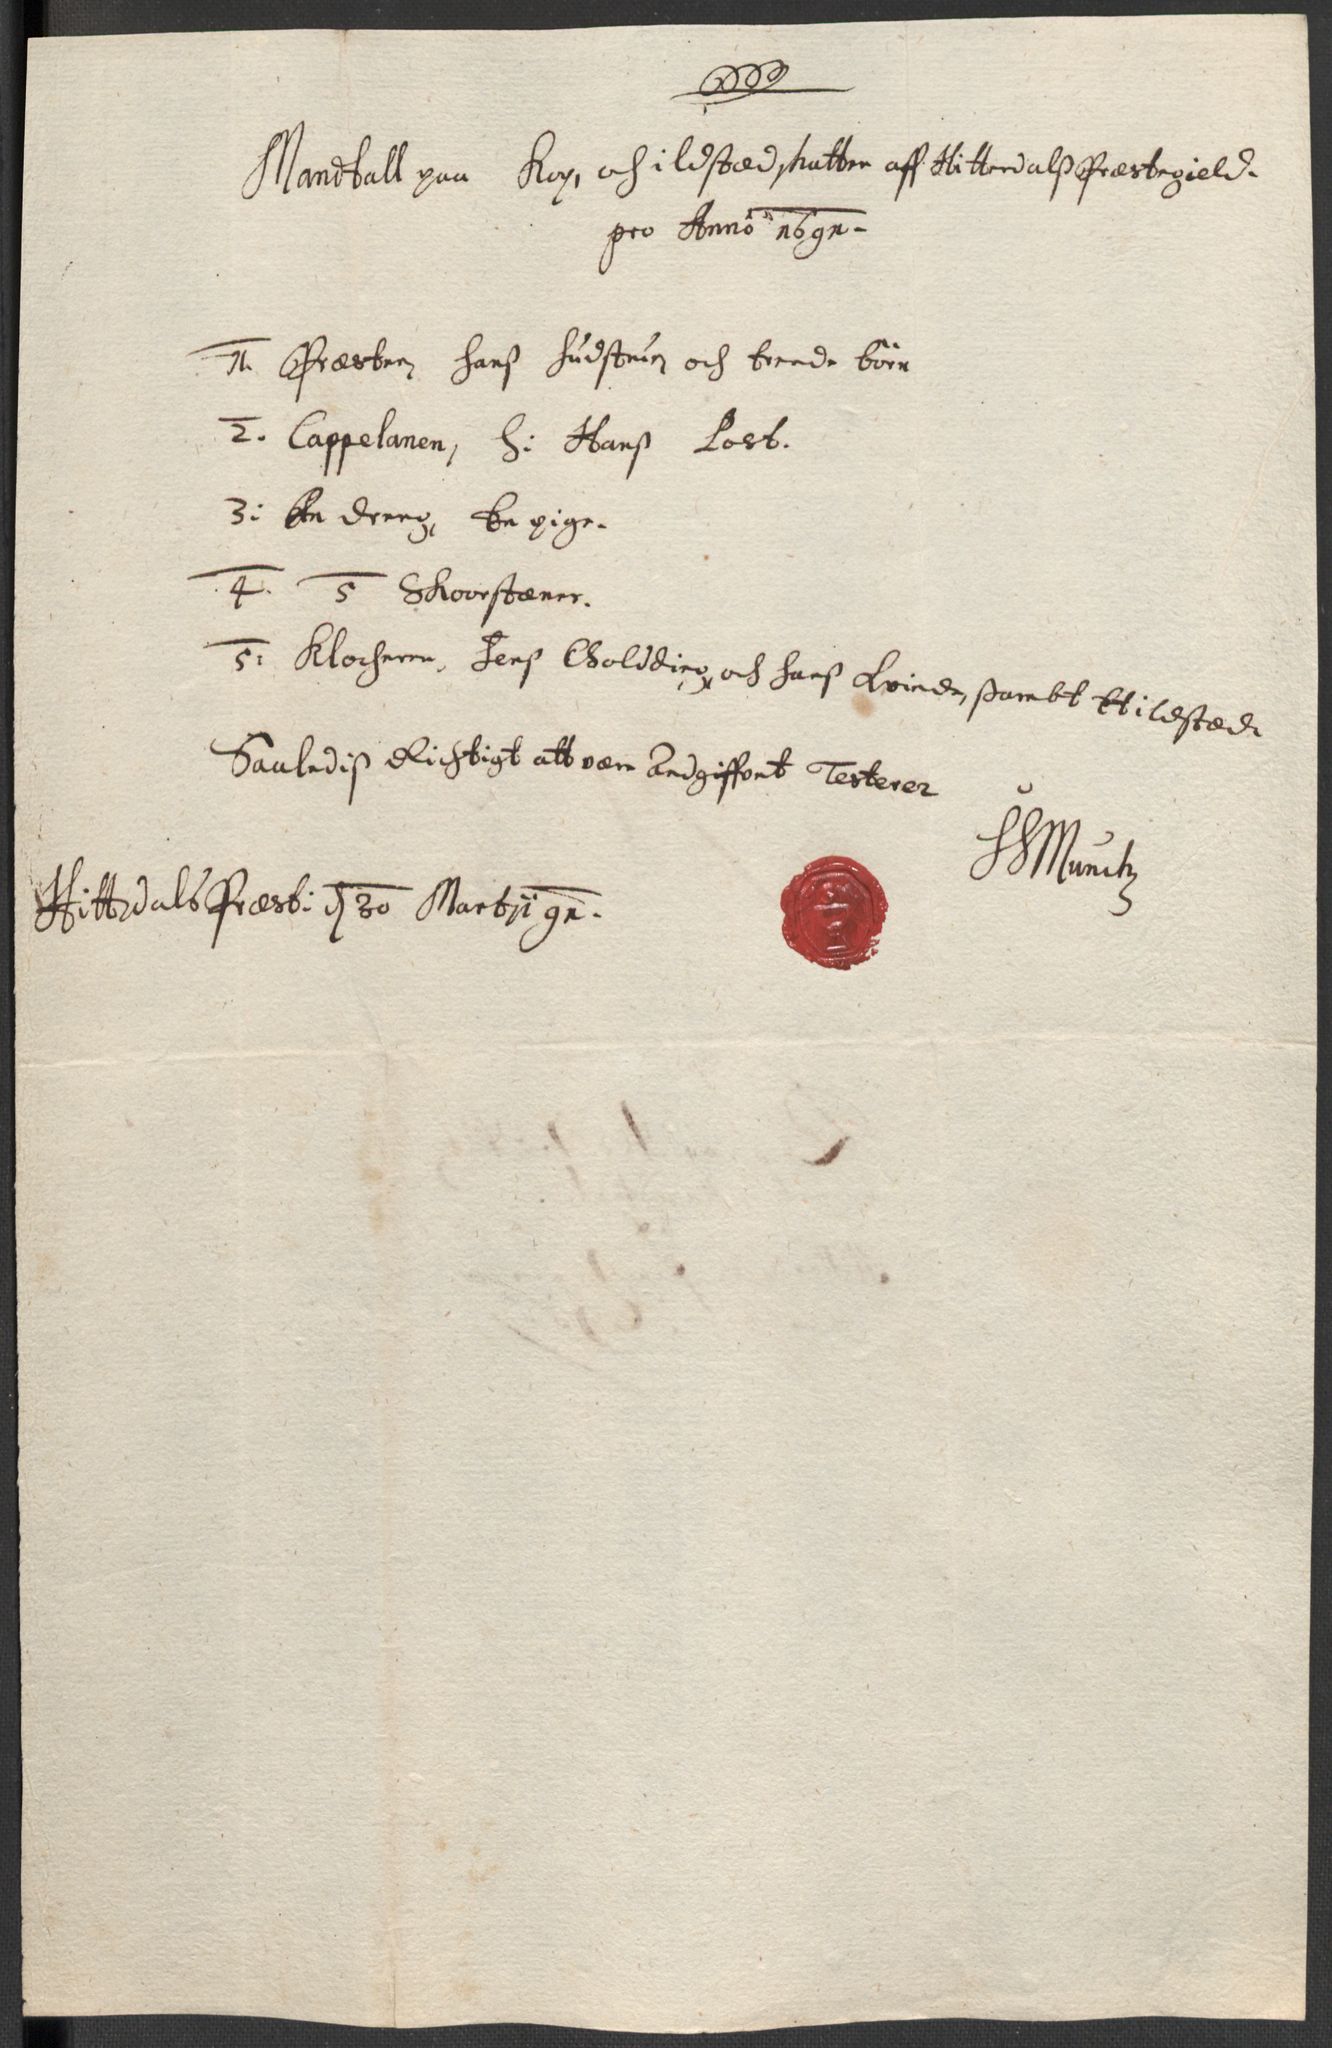 Mandtall paa Kop, och ildstæd skatten aff Hitterdalß Præstegield.
pro Anno 1691.
1. Præsten hanß hustru och trende börn
2. Cappelanen, H: Hanß Lost.
3: En dreng, En pige.
4. 5 Skorstæner.
5: Klocheren, Jenß Colding, och hanß Qvinde, sambt Et ildstæd
Saalediß Richtigt att være Andgiffvet Testerer
Munch
Hitterdals Præst: d 30 Martij 91.